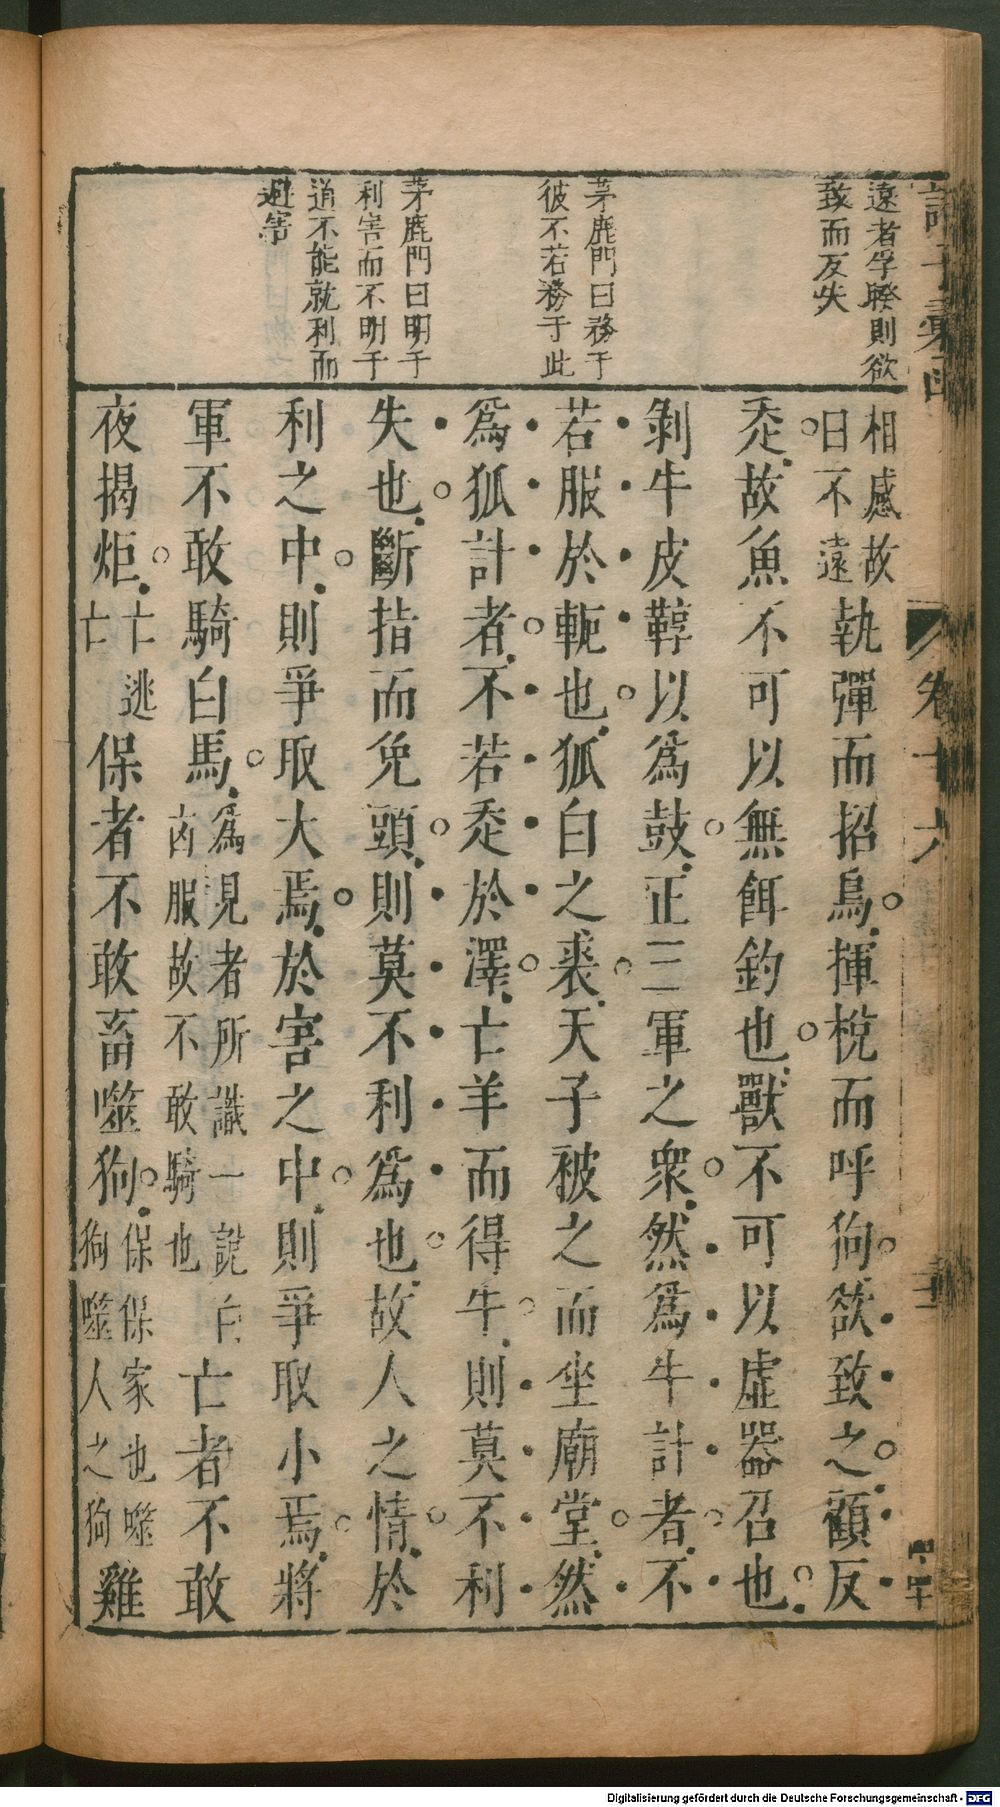 遠者孚睽則欲
致而反失
茅鹿門曰務于
彼不若務于此
茅鹿門曰明于
利害而不明于
道不能就利而
避害
相感故
日不遠
執彈而招鳥揮梲而呼狗欲致之顧反
走故魚不可以無餌釣也獸不可以虛器召也
剝牛皮鞟以為鼓正三軍之衆然為牛計者不
若服於軛也狐白之裘天子被之而坐廟堂然
為狐計者不若走於澤亡羊而得牛則莫不利
失也斷指而免頭則莫不利為也故人之情於
利之中則爭取大焉於害之中則爭取小焉將
軍不敢騎白馬
為見者所識一說白
凶服故不敢騎也
亡者不敢
夜揭炬
亡逃
亡
保者不敢畜噬狗
保保家也噬
狗噬人之狗
雞
卷十六
Digitalisierung gefördert durch die Deutsche Forschungsgemeinschaft - DFG